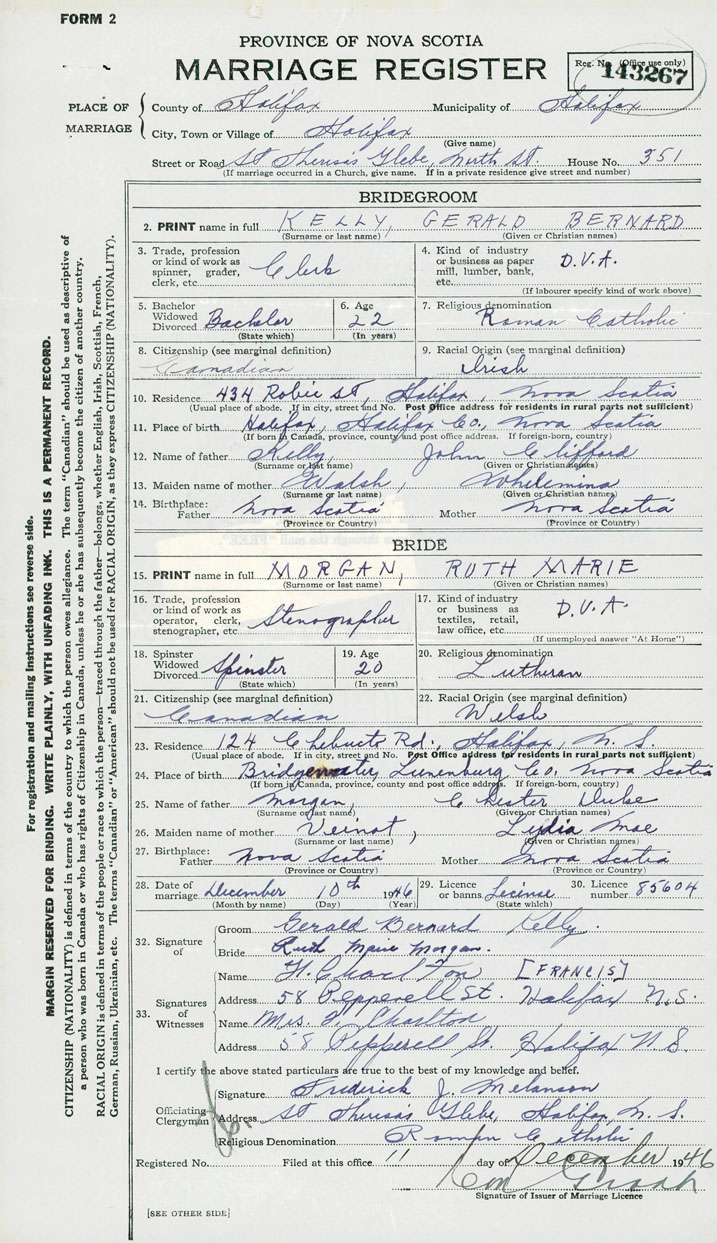 FORM 2
PROVINCE OF NOVA SCOTIA
MARRIAGE REGISTER
Reg. No. (Office use only)
143267
PLACE OF MARRIAGE
County of Halifax Municipality of Halifax
City, Town or Village of Halifax
(Give name)
Street or Road St Theresa's Glebe, North St. House No. 351
(If marriage occurred in a Church, give name. If in a private residence give street and number)
BRIDEGROOM
2. PRINT name in full KELLY, GERALD BERNARD
(Surname or last name) (Given or Christian names)
3. Trade, profession or kind of work as spinner, grader, clerk, etc. Clerk
4. Kind of industry or business as paper mill, lumber, bank, etc. D.V.A.
(If labourer specify kind of work above)
5. Bachelor Widowed Divorced Bachelor
(State which)
6. Age 22
(In years)
7. Religious denomination Roman Catholic
8. Citizenship (see marginal definition) Canadian
9. Racial Origin (see marginal definition) Irish
10. Residence 434 Robie St, Halifax, Nova Scotia
(Usual place of abode. If in city, street and No. Post Office address for residents in rural parts not sufficient)
11. Place of birth Halifax, Halifax Co., Nova Scotia
(If born in Canada, province, county and post office address. If foreign-born, country)
12. Name of father Kelly, John Clifford
(Surname or last name) (Given or Christian names)
13. Maiden name of mother Walsh, Whelemina
(Surname or last name) (Given or Christian names)
14. Birthplace: Father Nova Scotia Mother Nova Scotia
(Province or Country) (Province or Country)
BRIDE
15. PRINT name in full MORGAN, RUTH MARIE
(Surname or last name) (Given or Christian names)
16. Trade, profession or kind of work as operator, clerk, stenographer, etc. Stenographer
17. Kind of industry or business as textiles, retail, law office, etc. D.V.A.
(If unemployed answer "At Home")
18. Spinster Widowed Divorced Spinster
(State which)
19. Age 20
(In years)
20. Religious denomination Lutheran
21. Citizenship (see marginal definition) Canadian
22. Racial Origin (see marginal definition) Welsh
23. Residence 124 Chebucto Rd., Halifax, N. S.
(Usual place of abode. If in city, street and No. Post Office address for residents in rural parts not sufficient)
24. Place of birth Bridgewater, Lunenburg Co., Nova Scotia
(If born in Canada, province, county and post office address. If foreign-born, country)
25. Name of father Morgan, Chester Duke
(Surname or last name) (Given or Christian names)
26. Maiden name of mother Veinot, Lydia Mae
(Surname or last name) (Given or Christian names)
27. Birthplace: Father Nova Scotia Mother Nova Scotia
(Province or Country) (Province or Country)
28. Date of marriage December 10th 1946
(Month by name) (Day) (Year)
29. Licence or banns License
(State which)
30. Licence number 85604
32. Signature of
Groom Gerald Bernard Kelly.
Bride Ruth Marie Morgan.
33. Signatures of Witnesses
Name F. Charlton [FRANCIS]
Address 58 Pepperell St. Halifax N.S.
Name Mrs. F. Charlton
Address 58 Pepperell St. Halifax N.S.
I certify the above stated particulars are true to the best of my knowledge and belief.
Officiating Clergyman
Signature Frederick J. Melanson
Address St Theresa's Glebe, Halifax, N. S.
Religious Denomination Roman Catholic
Registered No. Filed at this office 11 day of December 1946
Signature of Issuer of Marriage Licence
[SEE OTHER SIDE]
For registration and mailing instructions see reverse side.
MARGIN RESERVED FOR BINDING. WRITE PLAINLY, WITH UNFADING INK. THIS IS A PERMANENT RECORD.
CITIZENSHIP (NATIONALITY) is defined in terms of the country to which the person owes allegiance. The term "Canadian" should be used as descriptive of
a person who was born in Canada or who has rights of Citizenship in Canada, unless he or she has subsequently become the citizen of another country.
RACIAL ORIGIN is defined in terms of the people or race to which the person—traced through the father—belongs, whether English, Irish, Scottish, French,
German, Russian, Ukrainian, etc. The terms "Canadian" or "American" should not be used for RACIAL ORIGIN, as they express CITIZENSHIP (NATIONALITY).